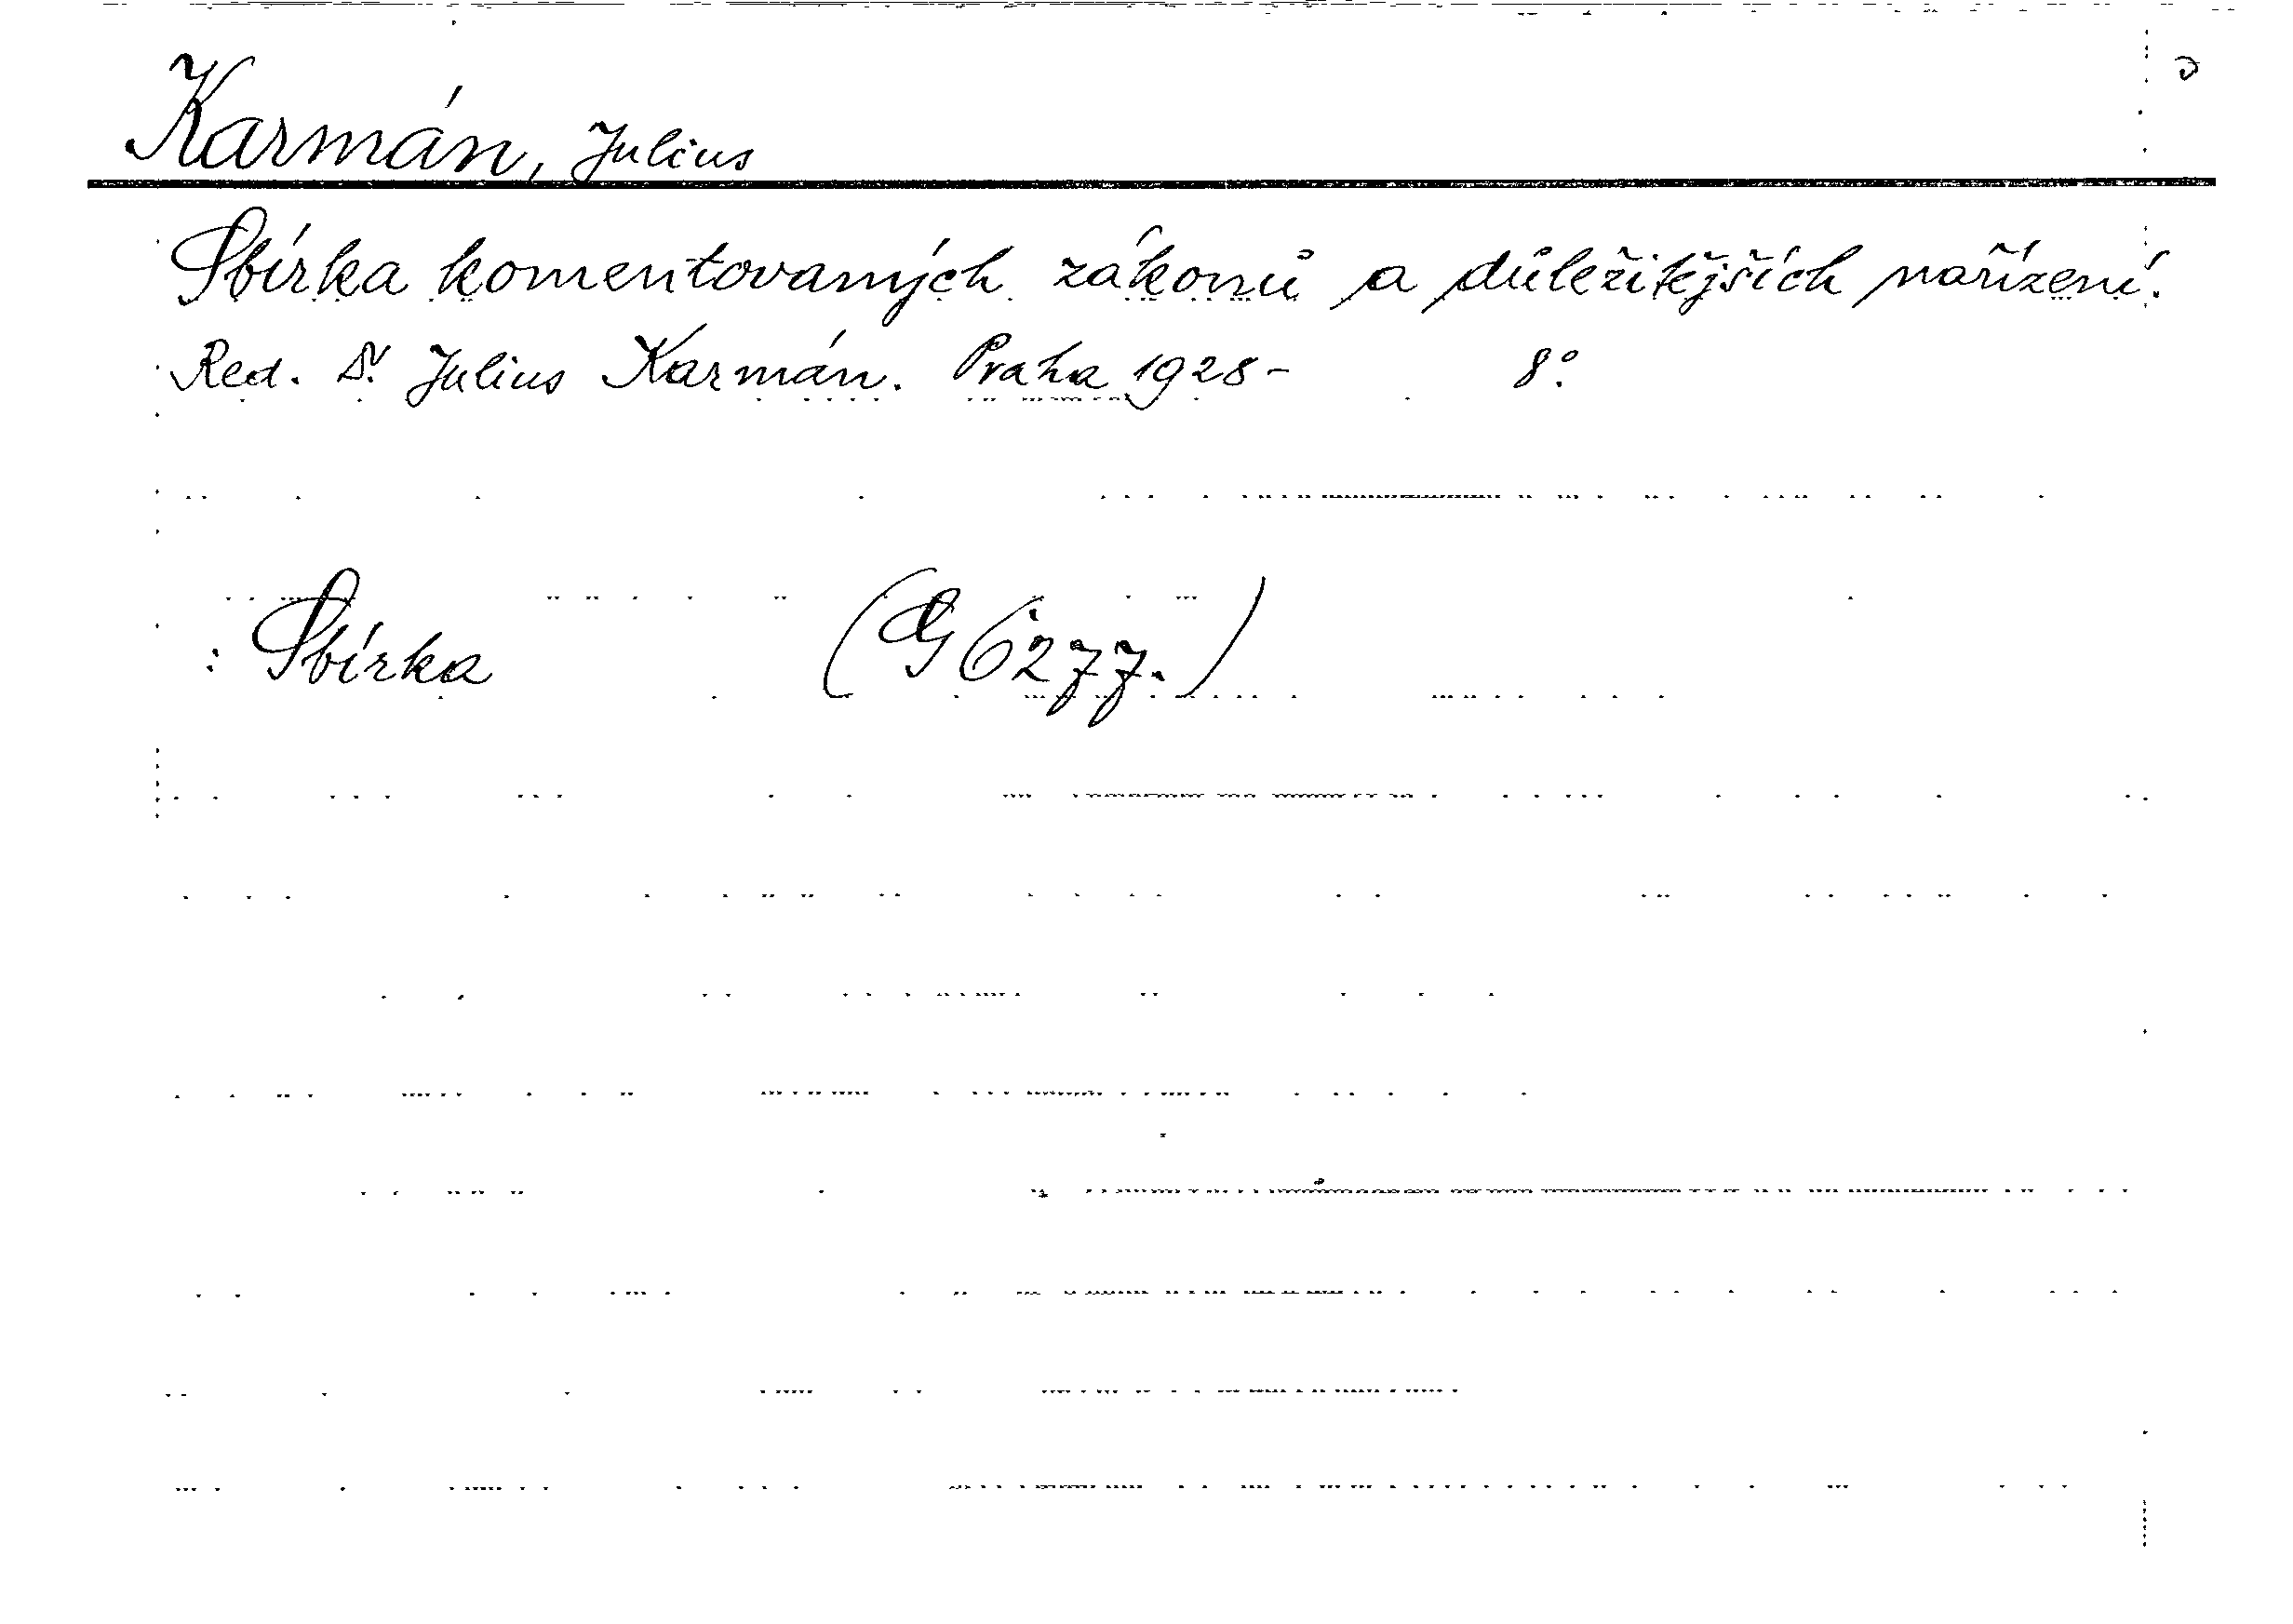 Karmán, Julius
Sbírka komentovaných zákonů a důležitějších nařízení.
Red. Dr. Julius Karmán. Praha 1928- 8°.
: Sbírka (G 6277.)